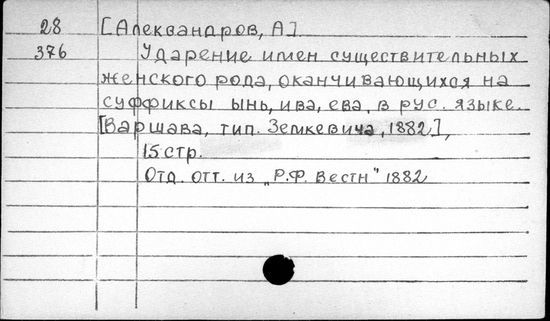 28 [Александров, А]
376 Ударение имен существительных
женского рода, оканчивающихся на
суффиксы ынь, ива, ева, в рус. языке.
[Варшава, тип. Земкевича, 1882],
15 стр.
Отд. отт. из „Р.Ф. Вестн" 1882